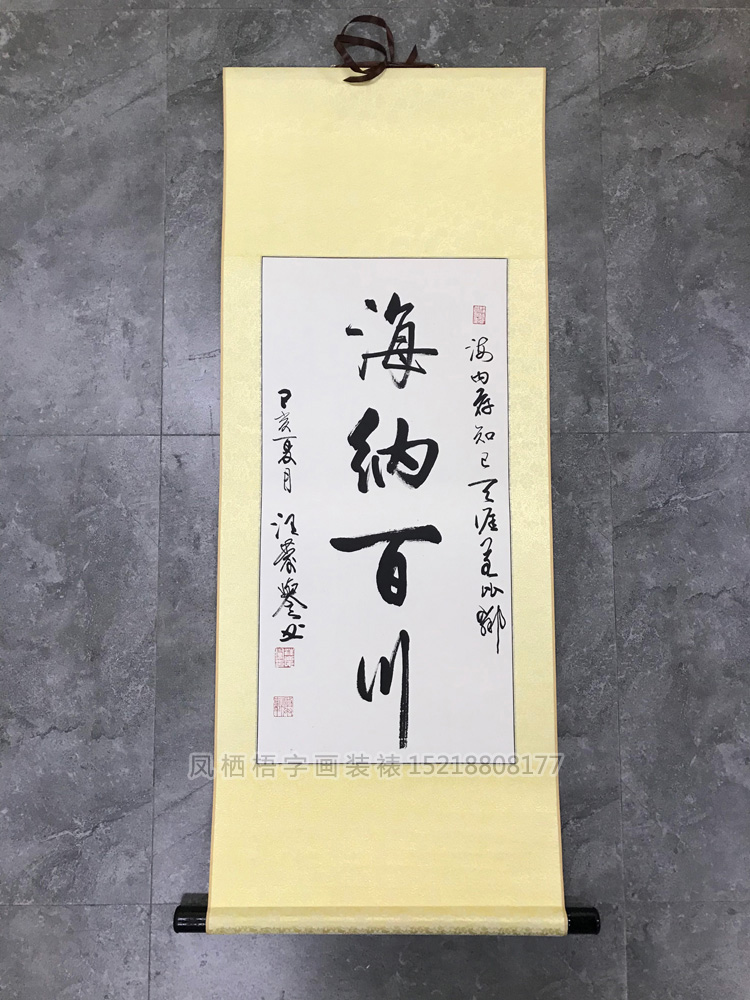 海内存知己天涯若比邻
海纳百川
己亥夏月
汪
书
凤栖梧字画装裱15218808177